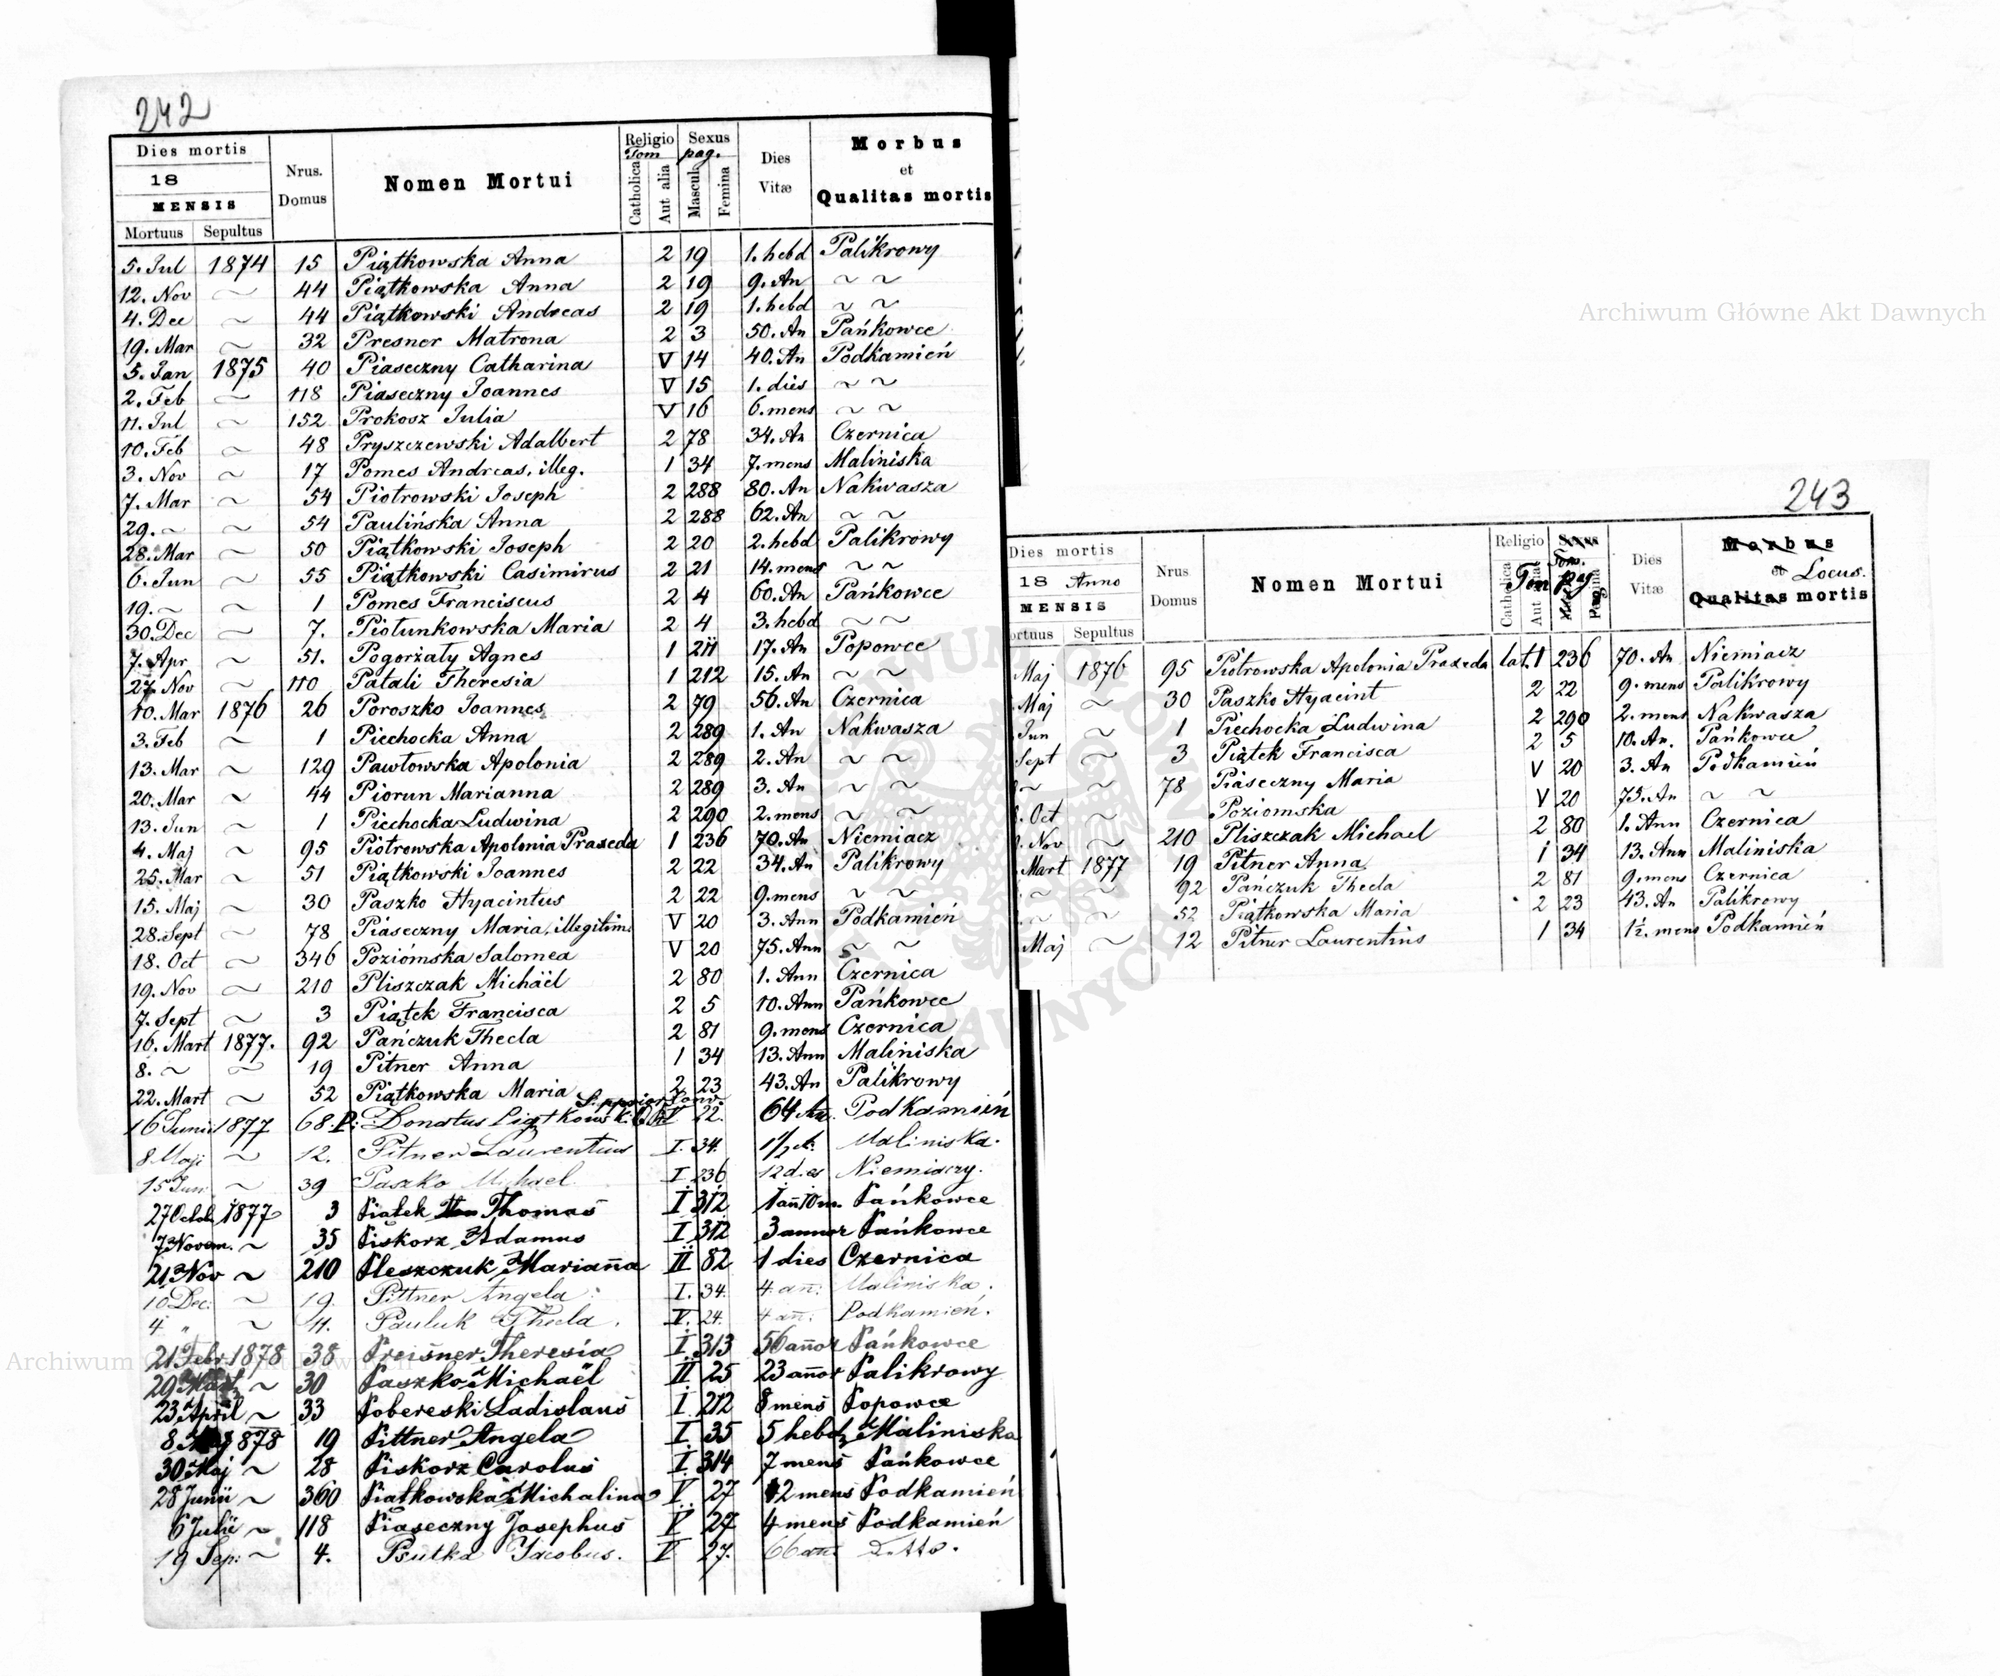 242
Dies mortis
18
MENSIS
Mortuus Sepultus
Nrus. Domus
Nomen Mortui
Religio Tom
Catholica Aut alia
Sexus pag.
Mascul. Femina
Dies Vitæ
Morbus
et
Qualitas mortis
5. Jul 1874 15 Piątkowska Anna 2 19 1. hebd Palikrowy
12. Nov ~ 44 Piątkowska Anna 2 19 9. An ~ ~
4. Dec ~ 44 Piątkowski Andreas 2 19 1. hebd ~ ~
19. Mar ~ 32 Presner Matrona 2 3 50. An Pańkowce
5. Jan 1875 40 Piaseczny Catharina V 14 40. An Podkamień
2. Feb ~ 118 Piaseczny Joannes V 15 1. dies ~ ~
11. Jul ~ 152 Prokosz Julia V 16 6. mens ~ ~
10. Feb ~ 48 Pryszczewski Adalbert 2 78 34. An Czernica
3. Nov ~ 17 Pomes Andreas, illeg. 1 34 7. mens Maliniska
7. Mar ~ 54 Piotrowski Joseph 2 288 80. An Nakwasza
29. ~ ~ 54 Paulińska Anna 2 288 62. An ~ ~
28. Mar ~ 50 Piątkowski Joseph 2 20 2. hebd Palikrowy
6. Jun ~ 55 Piątkowski Casimirus 2 21 14. mens ~ ~
19. ~ ~ 1 Pomes Franciscus 2 4 60. An Pańkowce
30. Dec ~ 7. Piotunkowska Maria 2 4 3. hebd ~ ~
7. Apr ~ 51. Pogorżały Agnes 1 211 17. An Popowce
27. Nov ~ 110 Patali Theresia 1 212 15. An ~ ~
10. Mar 1876 26 Poroszko Joannes 2 79 56. An Czernica
3. Feb ~ 1 Piechocka Anna 2 289 1. An Nakwasza
13. Mar ~ 129 Pawłowska Apolonia 2 289 2. An ~ ~
20. Mar ~ 44 Piorun Marianna 2 289 3. An ~ ~
13. Jun ~ 1 Piechocka Ludwina 2 290 2. mens ~ ~
4. Maj ~ 95 Piotrowska Apolonia Praxeda 1 236 70. An Niemiacz
25. Mar ~ 51 Piątkowski Joannes 2 22 34. An Palikrowy
15. Maj ~ 30 Paszko Hyacintus 2 22 9. mens ~ ~
28. Sept ~ 78 Piaseczny Maria, illegitim V 20 3. Ann Podkamień
18. Oct ~ 346 Poziómska Salomea V 20 75. Ann ~ ~
19. Nov ~ 210 Pliszczak Michäel 2 80 1. Ann Czernica
7. Sept ~ 3 Piątek Francisca 2 5 10. Ann Pańkowce
16. Mart 1877. 92 Pańczuk Thecla 2 81 9. mens Czernica
8. ~ ~ 19 Pitner Anna 1 34 13. Ann Maliniska
22. Mart ~ 52 Piątkowska Maria 2 23 43. An Palikrowy
16 Junii 1877 68. P: Donatus Piątkowski V 22. 64 An. Podkamień
8 Maji ~ 12. Pitner Laurentius I. 34. Maliniska.
15 Jun: ~ 39 Paszko Michael I 236 12 dies Niemiaczy.
27 Octob. 1877 3 Piatek Thomas I 312 1 añ 10 m. Pańkowce
7 Novem. ~ 35 Piskorz Adamus I 312 3 annor Pańkowce
21 Nov ~ 210 Pleszczuk Mariañna II 82 1 dies Czernica
10 Dec: ~ 19. Pittner Angela I. 34. 4 añ: Maliniska.
4 " ~ 11. Pauluk Thecla. V. 24. 4 añ: Podkamień.
21 Febr. 1878 38 Preisner Theresia I 313 56 añor Pańkowce
29 Mart ~ 30 Paszko Michaël II 25 23 añor Palikrowy
23 April ~ 33 Pobereski Ladislaus I 212 8 mens Popowce
8 Maj 1878 19 Pittner Angela I 35 5 hebd Maliniska
30 Maj ~ 28 Piskorz Carolus I 314 7 mens Pańkowce
28 Junii ~ 360 Piatkowska Michalina V 27 2 mens Podkamień
6 Julii ~ 118 Piaseczny Josephus V 27 4 mens Podkamień
19 Sep: ~ 4. Psutka Jacobus. V 27. 66 añ: Detto.
243
Dies mortis
18 Anno
MENSIS
ortuus Sepultus
Nrus Domus
Nomen Mortui
Religio
Catholica
Tom pag
Sexus
Dies Vitæ
Morbus
et Locus.
Qualitas mortis
Maj 1876 95 Piotrowska Apolonia Praxeda lat. 1 236 70. An Niemiacz
Maj ~ 30 Paszko Hyacint 2 22 9. mens Palikrowy
Jun ~ 1 Piechocka Ludwina 2 290 2. mens Nakwasza
Sept ~ 3 Piątek Francisca 2 5 10. An. Pańkowce
~ ~ 78 Piaseczny Maria V 20 3. An Podkamień
Oct ~ Poziomska V 20 75. An ~ ~
Nov ~ 210 Pliszczak Michael 2 80 1. Ann Czernica
Mart 1877 19 Pitner Anna 1 34 13. Ann Maliniska
~ ~ 92 Pańczuk Thecla 2 81 9. mens Czernica
~ ~ 52 Piątkowska Maria 2 23 43. An Palikrowy
Maj ~ 12 Pitner Laurentius 1 34 1½. mens Podkamień
Archiwum Główne Akt Dawnych